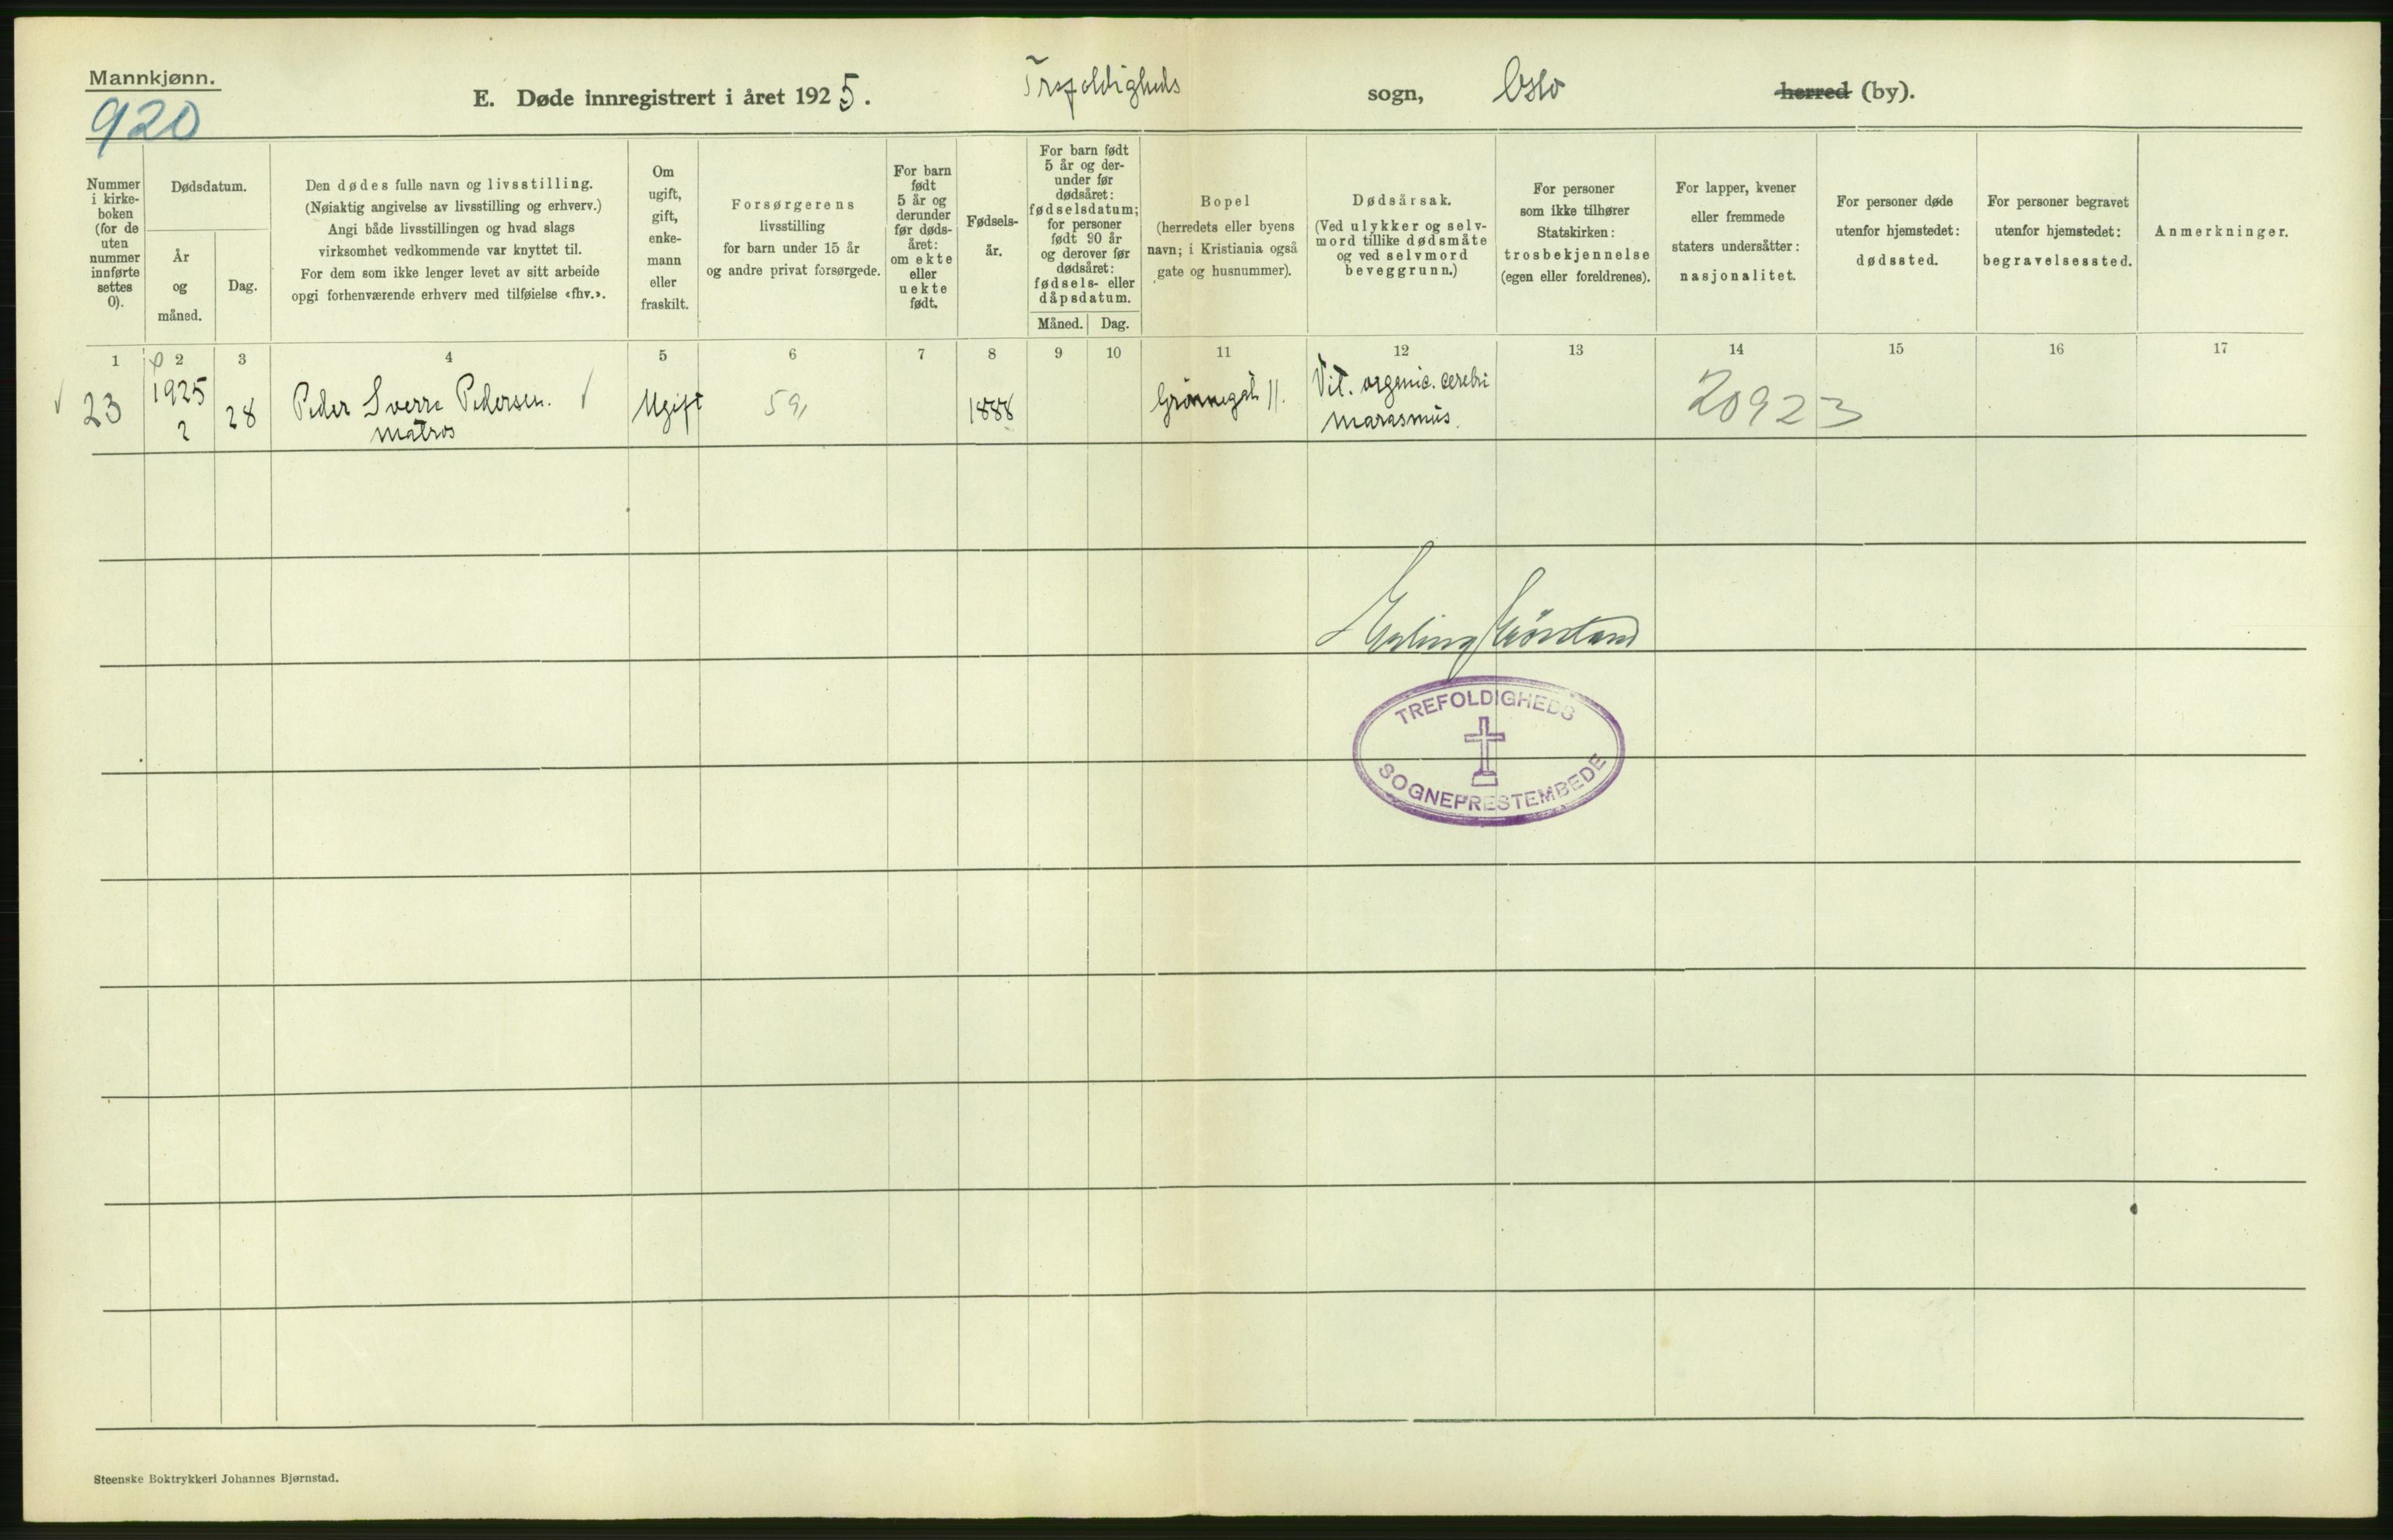 Mannkjønn.
920
E. Døde innregistrert i året 1925.
Trefoldigheds sogn, Oslo herred (by).
Nummer
i kirke-
boken
(for de
uten
nummer
innførte
settes
0).
Dødsdatum.
År
og
måned.
Dag.
Den dødes fulle navn og livsstilling.
(Nøiaktig angivelse av livsstilling og erhverv.)
Angi både livsstillingen og hvad slags
virksomhet vedkommende var knyttet til.
For dem som ikke lenger levet av sitt arbeide
opgi forhenværende erhverv med tilføielse «fhv.».
Om
ugift,
gift,
enke-
mann
eller
fraskilt.
Forsørgerens
livsstilling
for barn under 15 år
og andre privat forsørgede.
For barn
født
5 år og
derunder
før døds-
året:
om ekte
eller
uekte
født.
Fødsels-
år.
For barn født
5 år og der-
under før
dødsåret:
fødselsdatum;
for personer
født 90 år
og derover før
dødsåret:
fødsels- eller
dåpsdatum.
Måned. Dag.
Bopel
(herredets eller byens
navn; i Kristiania også
gate og husnummer).
Dødsårsak.
(Ved ulykker og selv-
mord tillike dødsmåte
og ved selvmord
beveggrunn.)
For personer
som ikke tilhører
Statskirken:
trosbekjennelse
(egen eller foreldrenes).
For lapper, kvener
eller fremmede
staters undersåtter:
nasjonalitet.
For personer døde
utenfor hjemstedet:
dødssted.
For personer begravet
utenfor hjemstedet:
begravelsessted.
Anmerkninger.
1 2 3 4 5 6 7 8 9 10 11 12 13 14 15 16 17
23
1925
2
28
Peder Sverre Pedersen.
Matros
Ugift
59,
1888
Grønnegat 11.
Vit. organic. cerebri
Marasmus.
20923
Erling Grønland
TREFOLDIGHEDS
SOGNEPRESTEMBEDE
Steenske Boktrykkeri Johannes Bjørnstad.